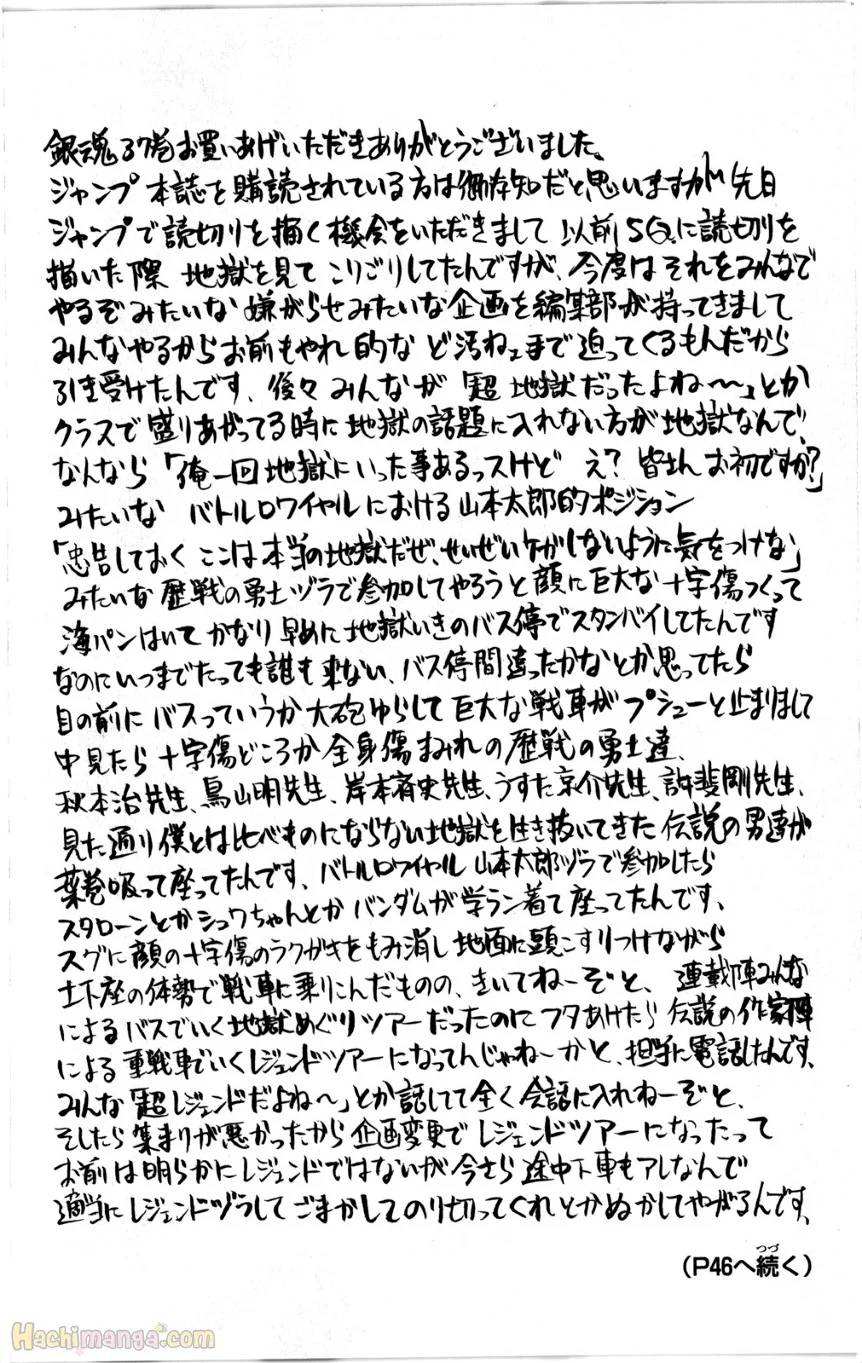 銀魂37巻お買いあげいただきありがとうございました。
ジャンプ本誌を購読されている方は御存知だと思いますが、先日
ジャンプで読切りを描く機会をいただきまして 以前SQ.に読切りを
描いた際 地獄を見て こりごりしてたんですが、今度はそれをみんなで
やるぞみたいな嫌がらせみたいな企画を編集部が持ってきまして
みんなやるからお前もやれ的な ど汚ねェまで迫ってくるもんだから
引き受けたんです、後々みんなが「超 地獄だったよね〜」とか
クラスで盛りあがってる時に地獄の話題に入れない方が地獄なんで、
なんなら「俺一回地獄にいった事あるっスけど え? 皆さん お初ですか?」
みたいな バトルロワイヤルにおける山本太郎的ポジション
「忠告しておく ここは本当の地獄だぜ、せいぜいケガしないように気をつけな」
みたいな歴戦の勇士ヅラで参加してやろうと顔に巨大な十字傷つくって
海パンはいて かなり早めに地獄いきのバス停でスタンバイしてたんです
なのにいつまでたっても誰も来ない、バス停間違ったかなとか思ってたら
目の前にバスっていうか大砲ゆらして巨大な戦車がプシューと止まりまして
中見たら十字傷どころか全身傷まみれの歴戦の勇士達、
秋本治先生、鳥山明先生、岸本斉史先生、うすた京介先生、許斐剛先生、
見た通り僕とは比べものにならない地獄を生き抜いてきた伝説の男達が
葉巻吸って座ってたんです、バトルロワイヤル山本太郎ヅラで参加したら
スタローンとかシュワちゃんとかバンダムが学ラン着て座ってたんです、
スグに顔の十字傷のラクガキをもみ消し地面に頭こすりつけながら
土下座の体勢で戦車に乗りこんだものの、きいてねーぞと、連載陣みんな
によるバスでいく地獄めぐりツアーだったのにフタあけたら伝説の作家陣
による重戦車でいくレジェンドツアーになってんじゃねーかと、担当に電話したんです、
みんな「超レジェンドだよね〜」とか話してて全く会話に入れねーぞと、
そしたら集まりが悪かったから企画変更でレジェンドツアーになったって
お前は明らかにレジェンドではないが今さら途中下車もアレなんで
適当にレジェンドヅラしてごまかしてのり切ってくれとかぬかしてやがるんです、
(P46へ続く)
つづ
Hachimanga.com